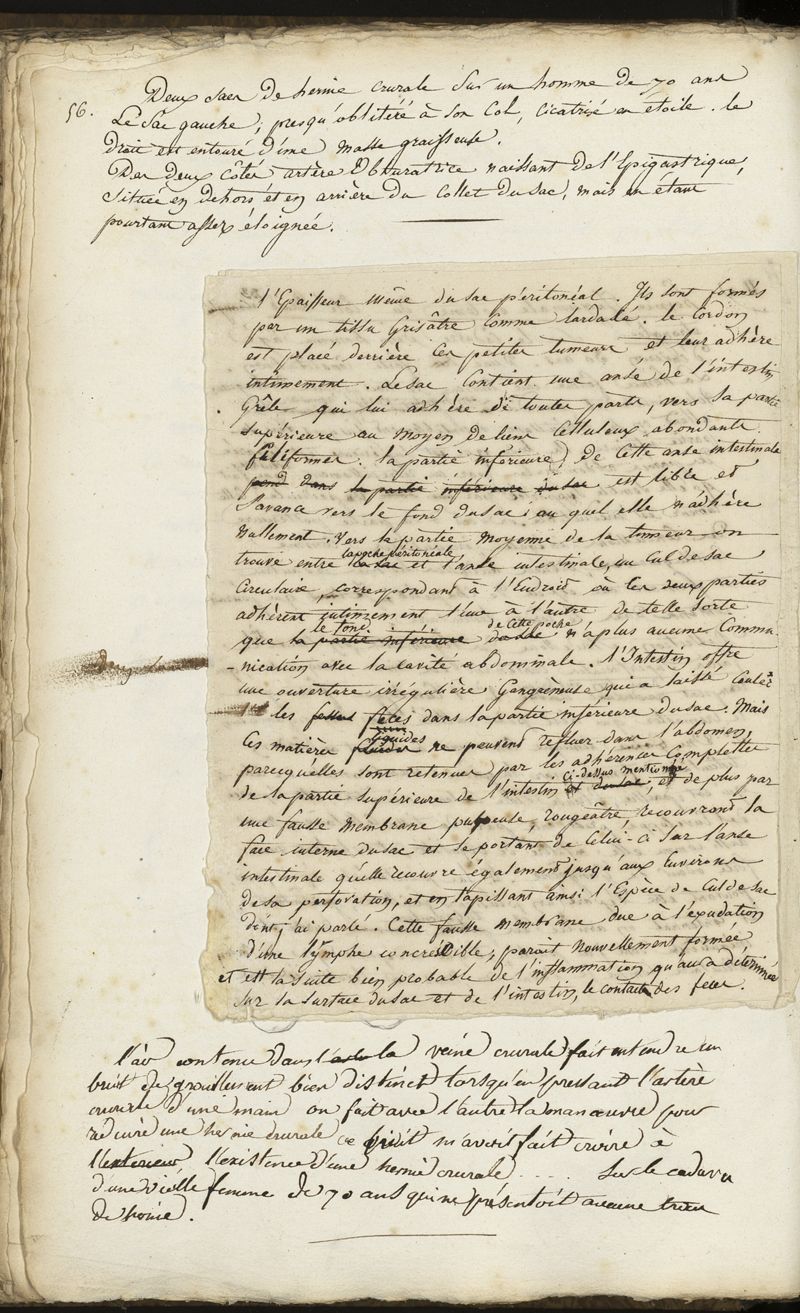 56. Deux sacs de hernie crurale sur un homme de 70 ans
Le sac gauche, presqu'oblitéré à son col, cicatrisé en étoile. le
droit est entouré d'une masse graisseuse.
Des deux côtés artère obturatrice naissant de l'Epigastrique,
située en dehors et en arrière du collet du sac, mais en étant
pourtant assez éloignée.
l'Epaisseur même du sac péritonéal. Ils sont formés
par un tissu grisâtre comme lardacé. le Cordon
est placé derrière ces petites tumeurs et leur adhère
intimement. Le sac contient une anse de l'intestin
Grêle qui lui adhère de toutes parts, vers sa partie
supérieure au moyen de liens celluleux abondants
filiformes. la partie inférieure de cette anse intestinale
pend dans la partie inférieure du sac est libre et
s'avance vers le fond du sac, auquel elle n'adhère
nullement. Vers la partie moyenne de la tumeur on
la poche péritonéale
trouve entre le sac et l'anse intestinale, un cul de sac
circulaire, correspondant à l'Endroit où les deux parties
adhèrent intimement l'une à l'autre de telle sorte
le fond de cette poche
que la partie inférieure du sac n'a plus aucune Commu-
-nication avec la cavité abdominale. l'Intestin offre
une ouverture irrégulière Gangréneuse qui a laissé couler
les feces dans la partie inférieure du sac. Mais
liquides
ces matières fluides ne peuvent refluer dans l'abdomen,
parcequ'elles sont retenues par les adhérences complettes
ci-dessus mentionnées
de la partie supérieure de l'intestin et du sac, et de plus par
une fausse membrane pulpeuse, rougeâtre, recouvrant la
face interne du sac et se portant de celui-ci sur l'anse
intestinale qu'elle recouvre également jusqu'aux Environs
de sa perforation, et en tapissant ainsi l'Espèce de Cul de sac
dont j'ai parlé. Cette fausse membrane due à l'exudation
d'une lymphe concrescible, parait nouvellement formée
et est la suite bien probable de l'inflammation qu'aura déterminée
sur la surface du sac et de l'intestin, le contact des feces.
l'air contenu dans la veine crurale fait entendre un
bruit de grouillement bien distinct lorsqu'en pressant l'artère
crurale d'une main on fait avec l'autre la manœuvre pour
réduire une hernie crurale ce bruit m'avoit fait croire à
l'exterieur, l'existence d'une hernie crurale .... Sur le cadavre
d'une vieille femme de 70 ans qui ne présentoit aucune trace
de hernie.